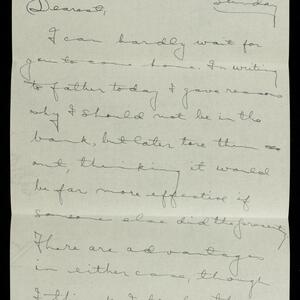 Dearest,
Sunday
I can hardly wait for
you to come home. In writing
to father today I gave reasons
why I should not be in the
bank, but later tore them
out, thinking it would
be far more effective if
someone else did the
There are advantages
in either case, though